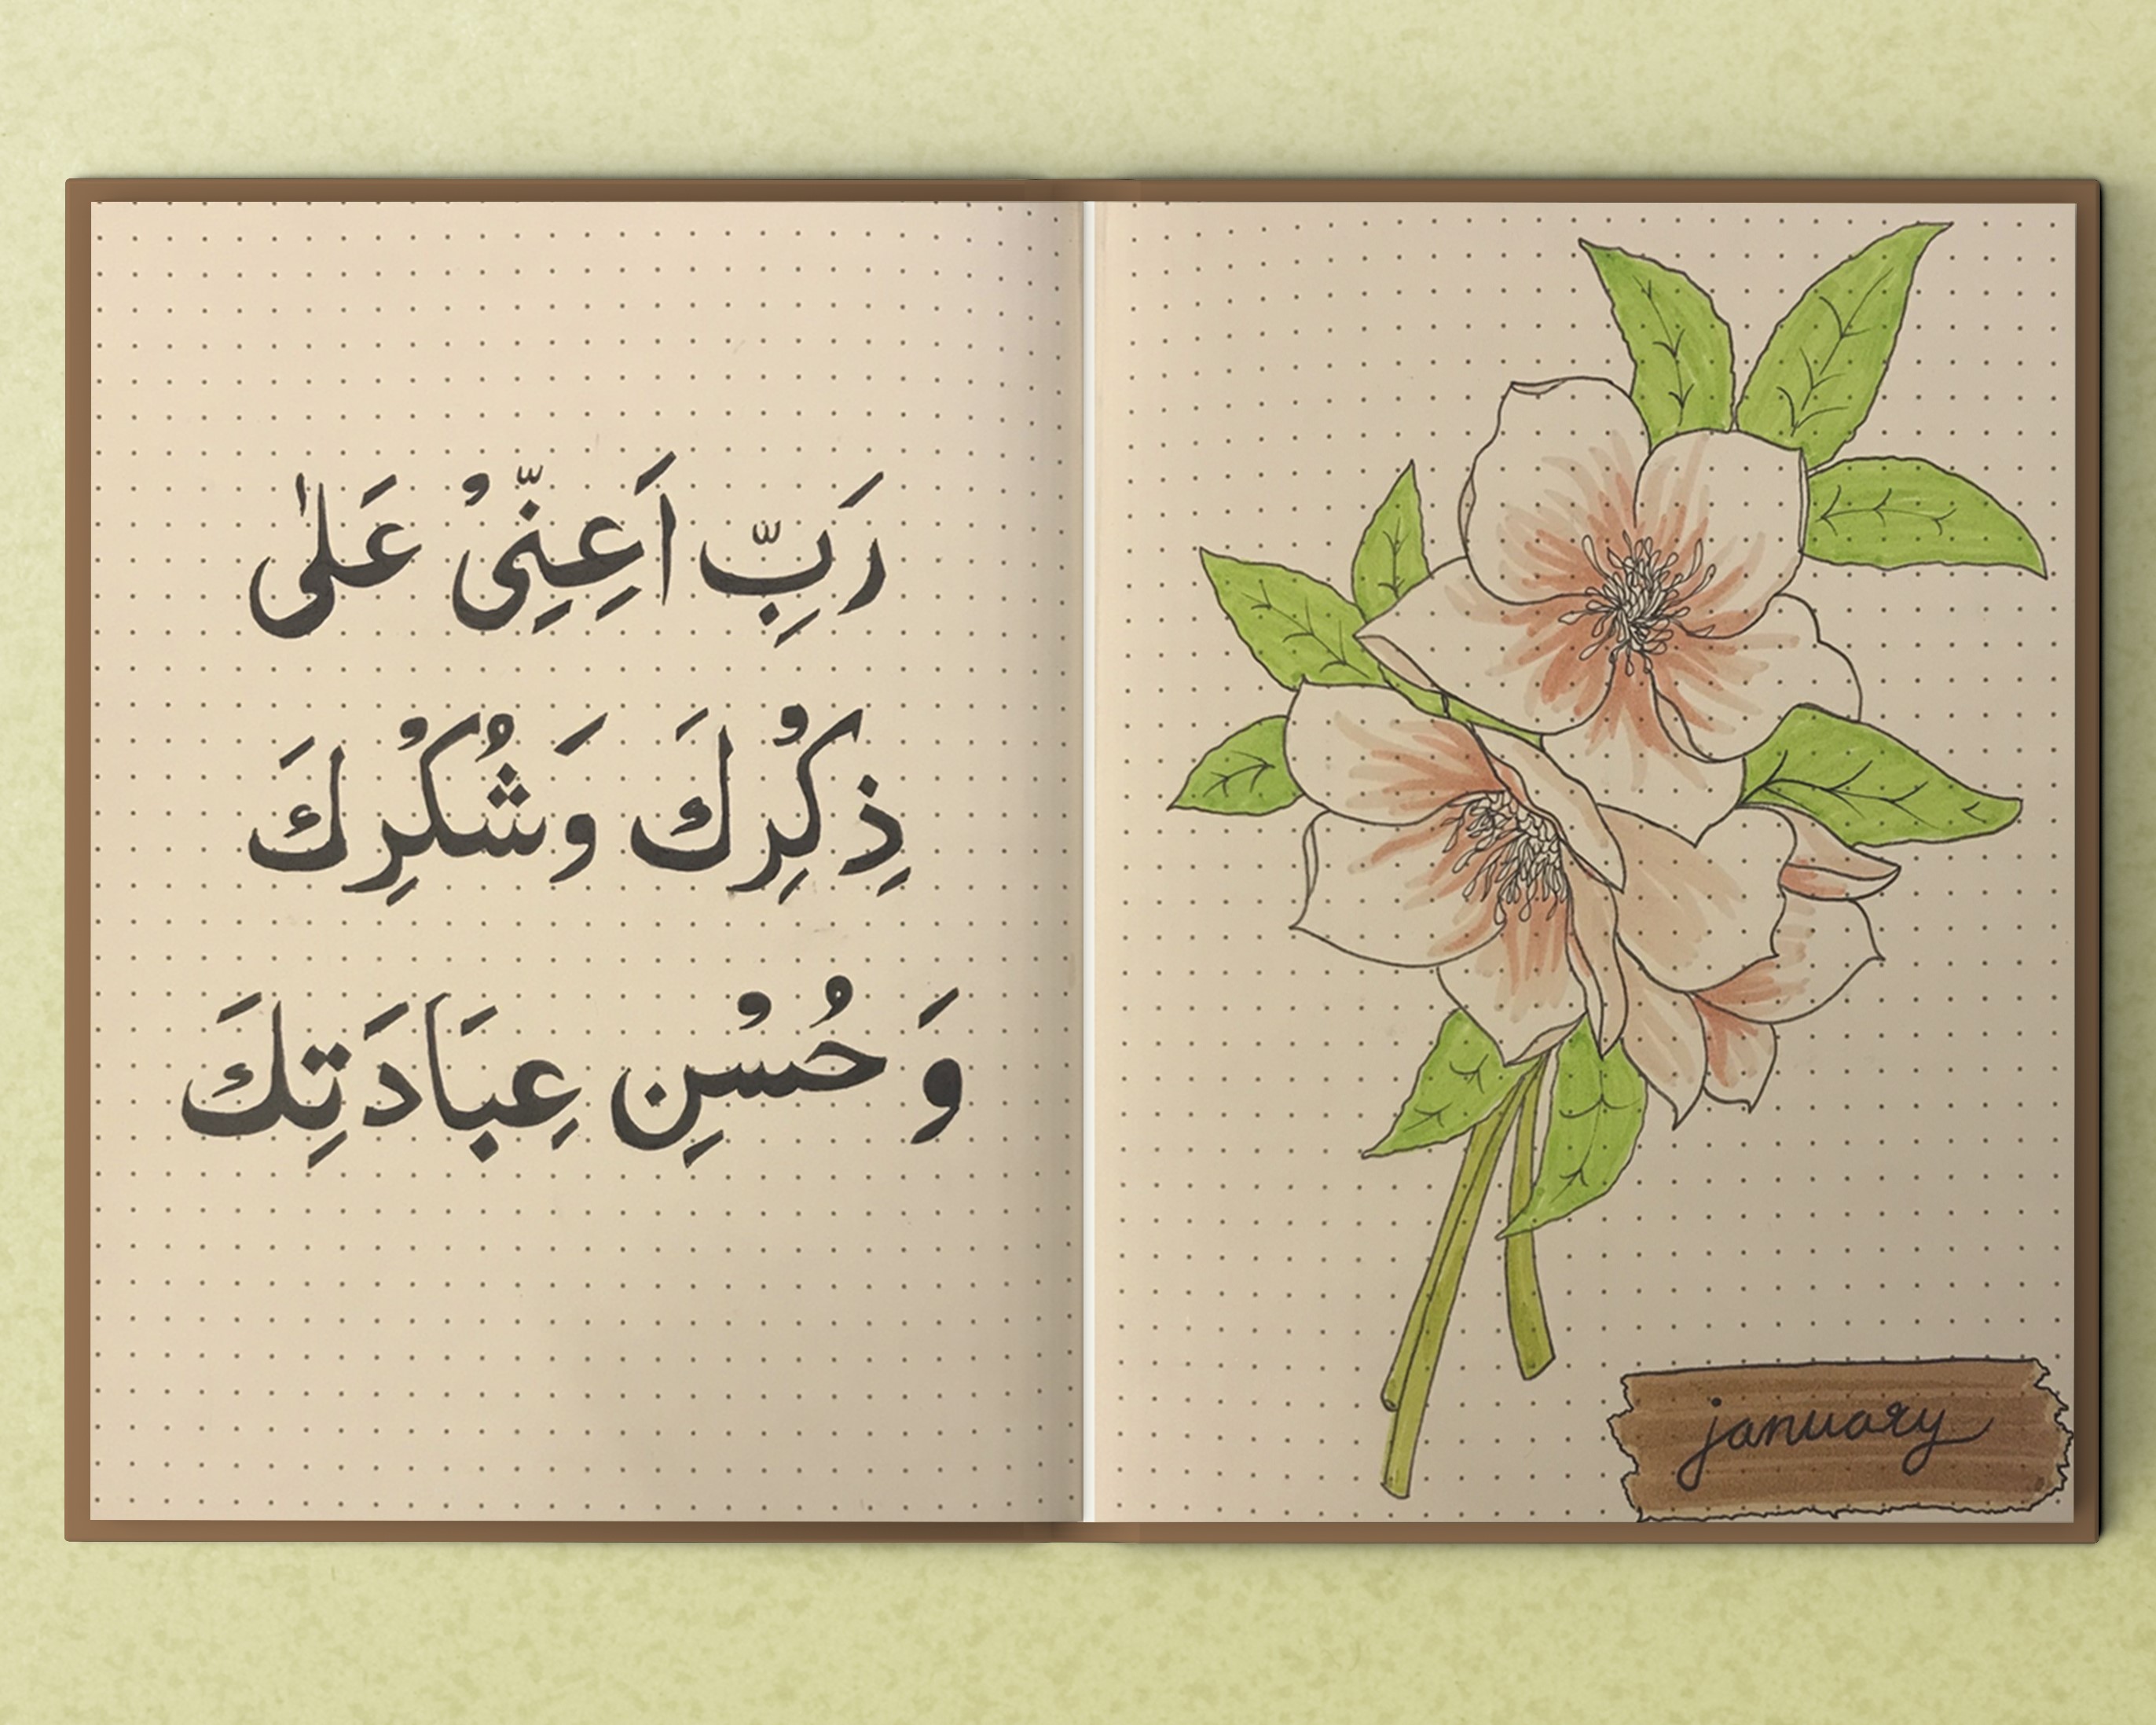 رَبِّ اَعِنِّیْ عَلیٰ
ذِكْرِكَ وَشُكْرِكَ
وَ حُسْنِ عِبَادَتِكَ
january